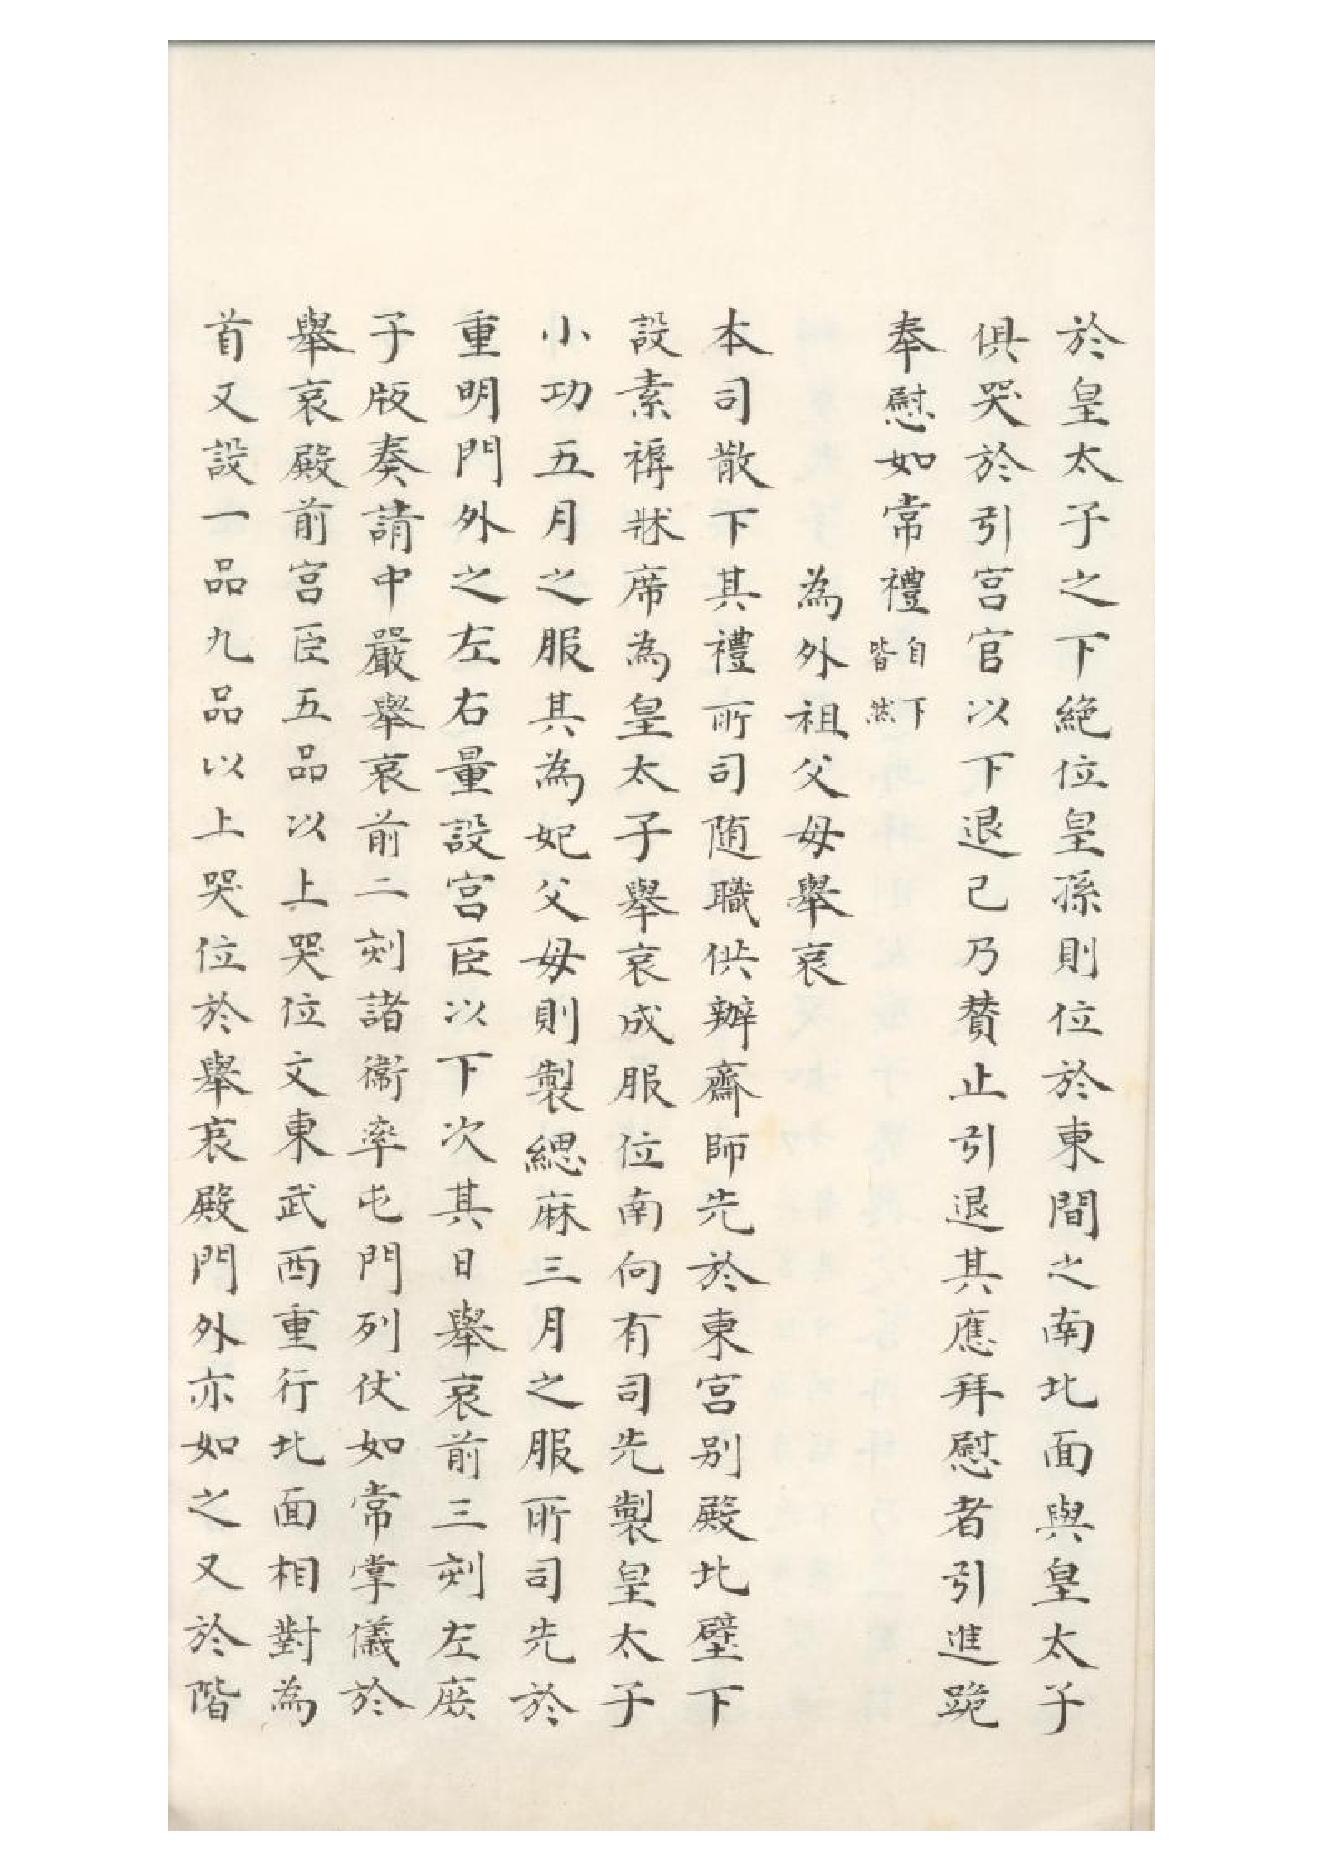 於皇太子之下絶位皇孫則位於東間之南北面與皇太子
俱哭於引宫官以下退己乃賛止引退其應拜慰者引進跪
奉慰如常禮自下皆然
為外祖父母舉哀
本司散下其禮所司随職供辦齋師先於東宫别殿北壁下
設素褥牀席為皇太子舉哀成服位南向有司先製皇太子
小功五月之服其為妃父母則製緦麻三月之服所司先於
重明門外之左右量設宫臣以下次其日舉哀前三刻左庻
子版奏請中嚴舉哀前二刻諸衛率屯門列仗如常掌儀於
舉哀殿前宫臣五品以上哭位文東武西重行北面相對為
首又設一品九品以上哭位於舉哀殿門外亦如之又於階